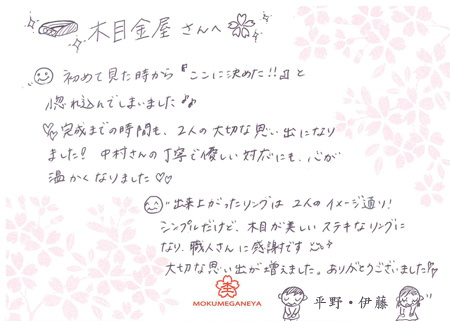 木目金屋さんへ
初めて見た時から『ここに決めた!!』と
惚れ込んでしまいました♪
♡完成までの時間も、2人の大切な思い出になり
ました! 中村さんの丁寧で優しい対応にも、心が
温かくなりました♡♡
出来上がったリングは 2人のイメージ通り!
シンプルだけど、木目が美しいステキなリングに
なり、職人さんに感謝です
大切な思い出が増えました。ありがとうございました!
MOKUMEGANEYA
平野・伊藤